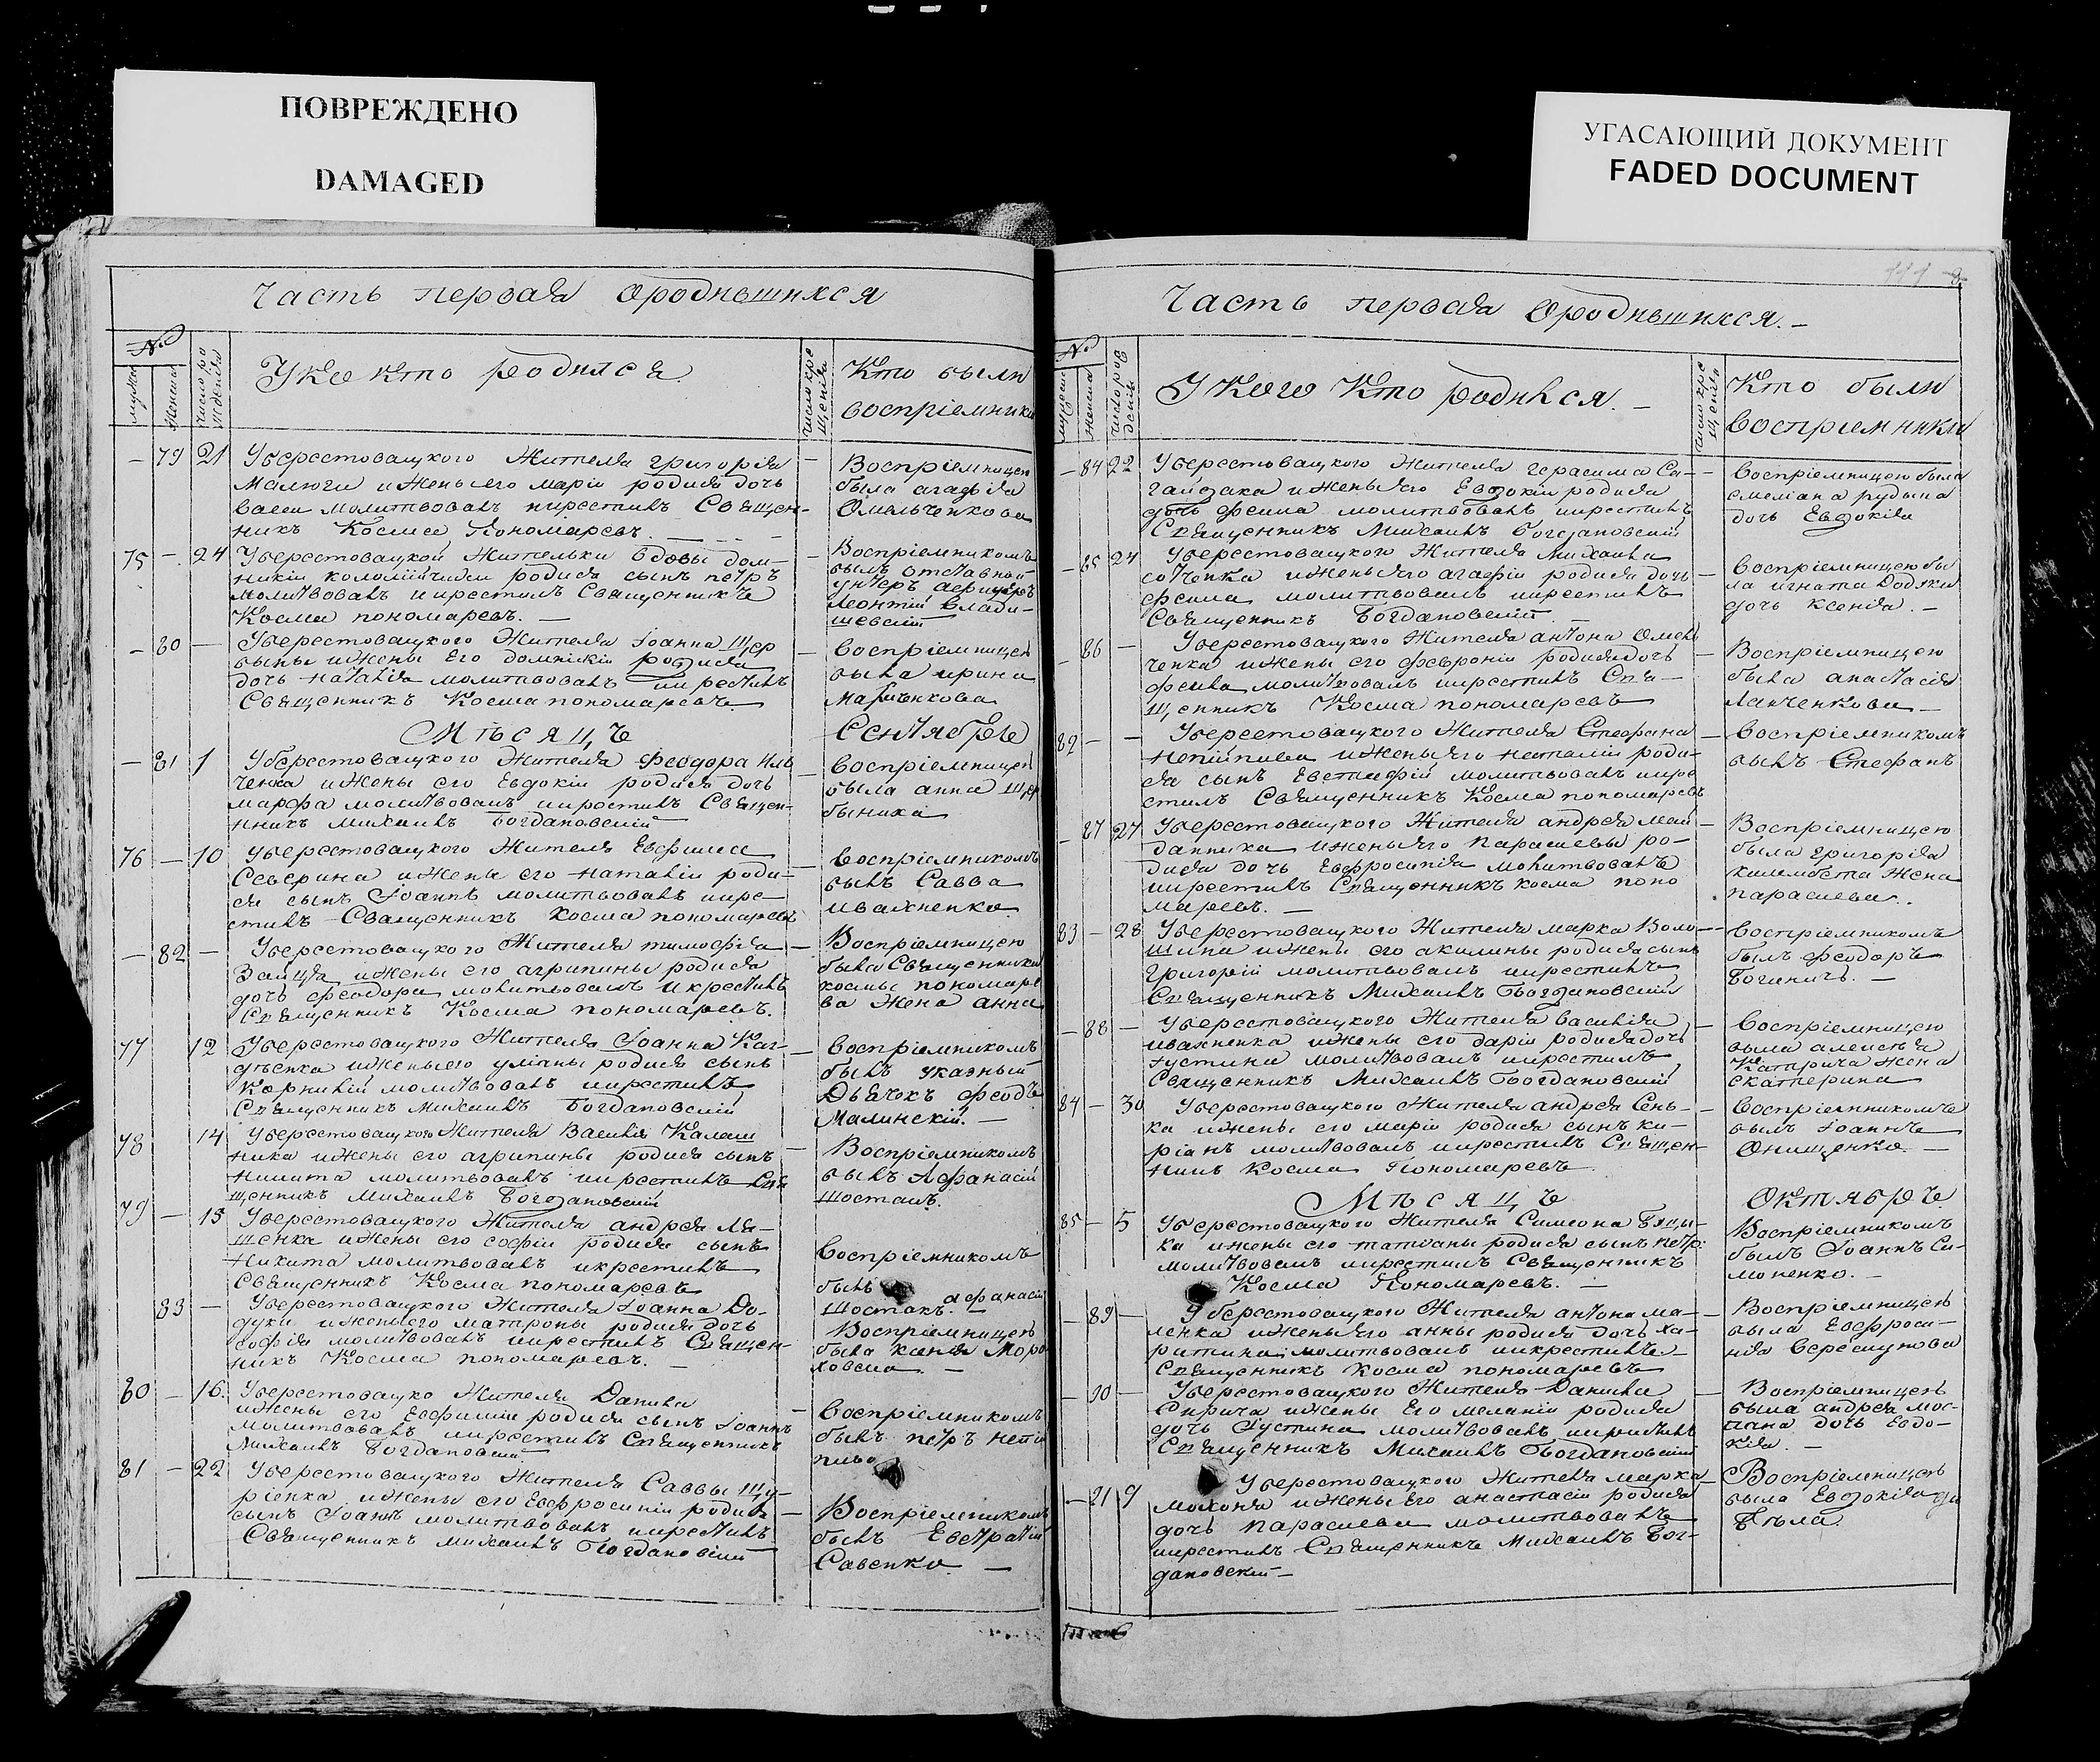 ПОВРЕЖДЕНО
DAMAGED
УГАСАЮЩИЙ ДОКУМЕНТ
FADED DOCUMENT
Часть первая ородившихся
№
мужеск
женск
число рождения
У ково кто родился
число крещения
Кто были
восприемники
79 21 Уберестовацкого Жителя григорія
Малюги иЖены его маріи родися дочь
васса молитвовалъ икрестилъ Священ-
никъ Косма Пономаревъ.
Восприемницею
была агафія
Омельченкова
75 24 Уберестовацкой Жительки вдовы дом-
никіи коломійчихи родися сынъ петръ
молитвовалъ икрестилъ Священникъ
Косма пономаревъ.
Восприемникомъ
былъ отставной
унтеръ афицеръ
Леонтій Влади-
шевскій
80 Уберестовацкого Жителя Іоанна Щер
бины иЖены Его домникіи родися
дочь наталія молитвовалъ икрестилъ
Священникъ Косма пономаревъ
восприемницею
была ирина
Марченкова
Мѣсяцъ Сентябрь
81 1 Уберестовацкого Жителя Феодора Иль
ченка иЖены его Евдокіи родися дочь
марфа молитвовалъ икрестилъ Священ-
нникъ михаилъ Богдановскій
восприемницею
была анна Щер
быника
76 10 Уберестовацкого Жителя Евфимія
Северина иЖены его наталіи роди-
ся сынъ Іоаннъ молитвовалъ икре-
стилъ Священникъ косма пономаревъ
восприемникомъ
былъ Савва
ивахненко
82 Уберестовацкого Жителя тимофея
Зайця иЖены его агрипины родися
дочь феодора молитвовалъ икрестилъ
Священникъ Косма пономаревъ.
Восприемницею
была Священника
космы пономаре
ва жена анна
77 12 Уберестовацкого Жителя Іоанна
иЖены его уліаны родися сынъ
Корнилій молитвовалъ икрестилъ
Священникъ Михаилъ Богдановскій
восприемникомъ
былъ указный
Дьячокъ Феодъ
Малинскій.
78 14 Уберестовацкого Жителя Василія Калаш
ника иЖены его агрипины родися сынъ
Никита молитвовалъ икрестилъ Свя
щенникъ Михаилъ Богдановскій
Восприемникомъ
былъ Афанасій
Шостакъ.
79 15 Уберестовацкого Жителя андрея Ля-
шенка иЖены его софіи родися сынъ
Никита молитвовалъ икрестилъ
Священникъ Косма пономаревъ
восприемникомъ
былъ афанасій
Шостакъ.
83 Уберестовацкого Жителя Іоанна До-
дуки иЖены его матроны родися дочь
софія молитвовалъ икрестилъ Священ-
никъ Косма пономаревъ.
Восприемницею
была ксенія Моро
ховска
80 16 Уберестовацко Жителя Данила
иЖены его Евфиміи родися сынъ Іоаннъ
молитвовалъ икрестилъ Священникъ
Михаилъ Богдановскій
восприемникомъ
былъ петръ непій
пиво
81 22 Уберестовацкого Жителя Саввы
иЖены его Евфросиніи родися
сынъ Іоаннъ молитвовалъ икрестилъ
Священникъ михаилъ Богдановскій
Восприемникомъ
былъ Евстратій
Савенко
Часть первая Ородившихся.
№
мужеск
женск
число рождения
У кого Кто родился.
число крещения
Кто были
Восприемники
84 22 Уберестовацкого Жителя герасима Са-
гайдака иЖены его Евдокіи родися
дочь фекла молитвовалъ икрестилъ
Священникъ Михаилъ Богдановскій
Восприемницею была
емеліана рудына
дочь Евдокія
85 24 Уберестовацкого Жителя михаила
сотченка иЖены его агафіи родися дочь
фекла молитвовалъ икрестилъ
Священникъ Богдановскій
восприемницею бы
ла игната
дочь ксенія.
86 Уберестовацкого Жителя антона Омель
ченка иЖены его февроніи родися дочь
фекла молитвовалъ икрестилъ Свя-
щенникъ Косма пономаревъ
Восприемницею
была анастасія
Ланченкова
82 Уберестовацкого Жителя Стефана
непійпива иЖены его наталіи роди-
ся сынъ Евстафій молитвовалъ икре
стилъ Священникъ Косма пономаревъ
восприемникомъ
былъ Стефанъ
87 27 Уберестовацкого Жителя андрея май
данника иЖены его Параскевы ро-
дися дочь Евфросинія молитвовалъ
икрестилъ Священникъ косма поно
маревъ.
Восприемницею
была григорія
жена
параскева.
83 28 Уберестовацкого Жителя марка Воло-
шина иЖены его акилины родися сынъ
Григорій молитвовалъ икрестилъ
Священникъ Михаилъ Богдановскій
восприемникомъ
былъ феодоръ
Богиничъ.
88 Уберестовацкого Жителя василія
ивахненка иЖены его даріи родися дочь
іустина молитвовалъ икрестилъ
Священникъ Михаилъ Богдановскій
восприемницею
была алексѣя
Катрича жена
екатерина
84 30 Уберестовацкого Жителя андрея Сень-
ка иЖены его маріи родися сынъ ки-
ріанъ молитвовалъ икрестилъ Священ-
никъ Косма Пономаревъ
восприемникомъ
былъ Іоаннъ
Онищенко
Мѣсяцъ Октябрь
85 5 Уберестовацкого Жителя Симеона
иЖены его татіаны родися сынъ петръ
молитвовалъ икрестилъ Священникъ
Косма Пономаревъ.
Восприемникомъ
былъ Іоаннъ Си-
моненко.
89 Уберестовацкого Жителя антона ма-
ленка иЖены его анны родися дочь ха-
ритина молитвовалъ икрестилъ
Священникъ косма пономаревъ
Восприемницею
была Евфроси-
нія
90 Уберестовацкого Жителя Данила
Сирича иЖены Его меланіи родися
дочь Іустина молитвовалъ икрестилъ
Священникъ Михаилъ Богдановскій
Восприемницею
была андрея мос-
пана дочь Евдо-
кія.
21 9 Уберестовацкого Жителя марка
махоня иЖены Его анастасіи родися
дочь параскева молитвовалъ
икрестилъ Священникъ Михаилъ Бог-
дановскій
Восприемницею
была Евдокія
Бѣла.